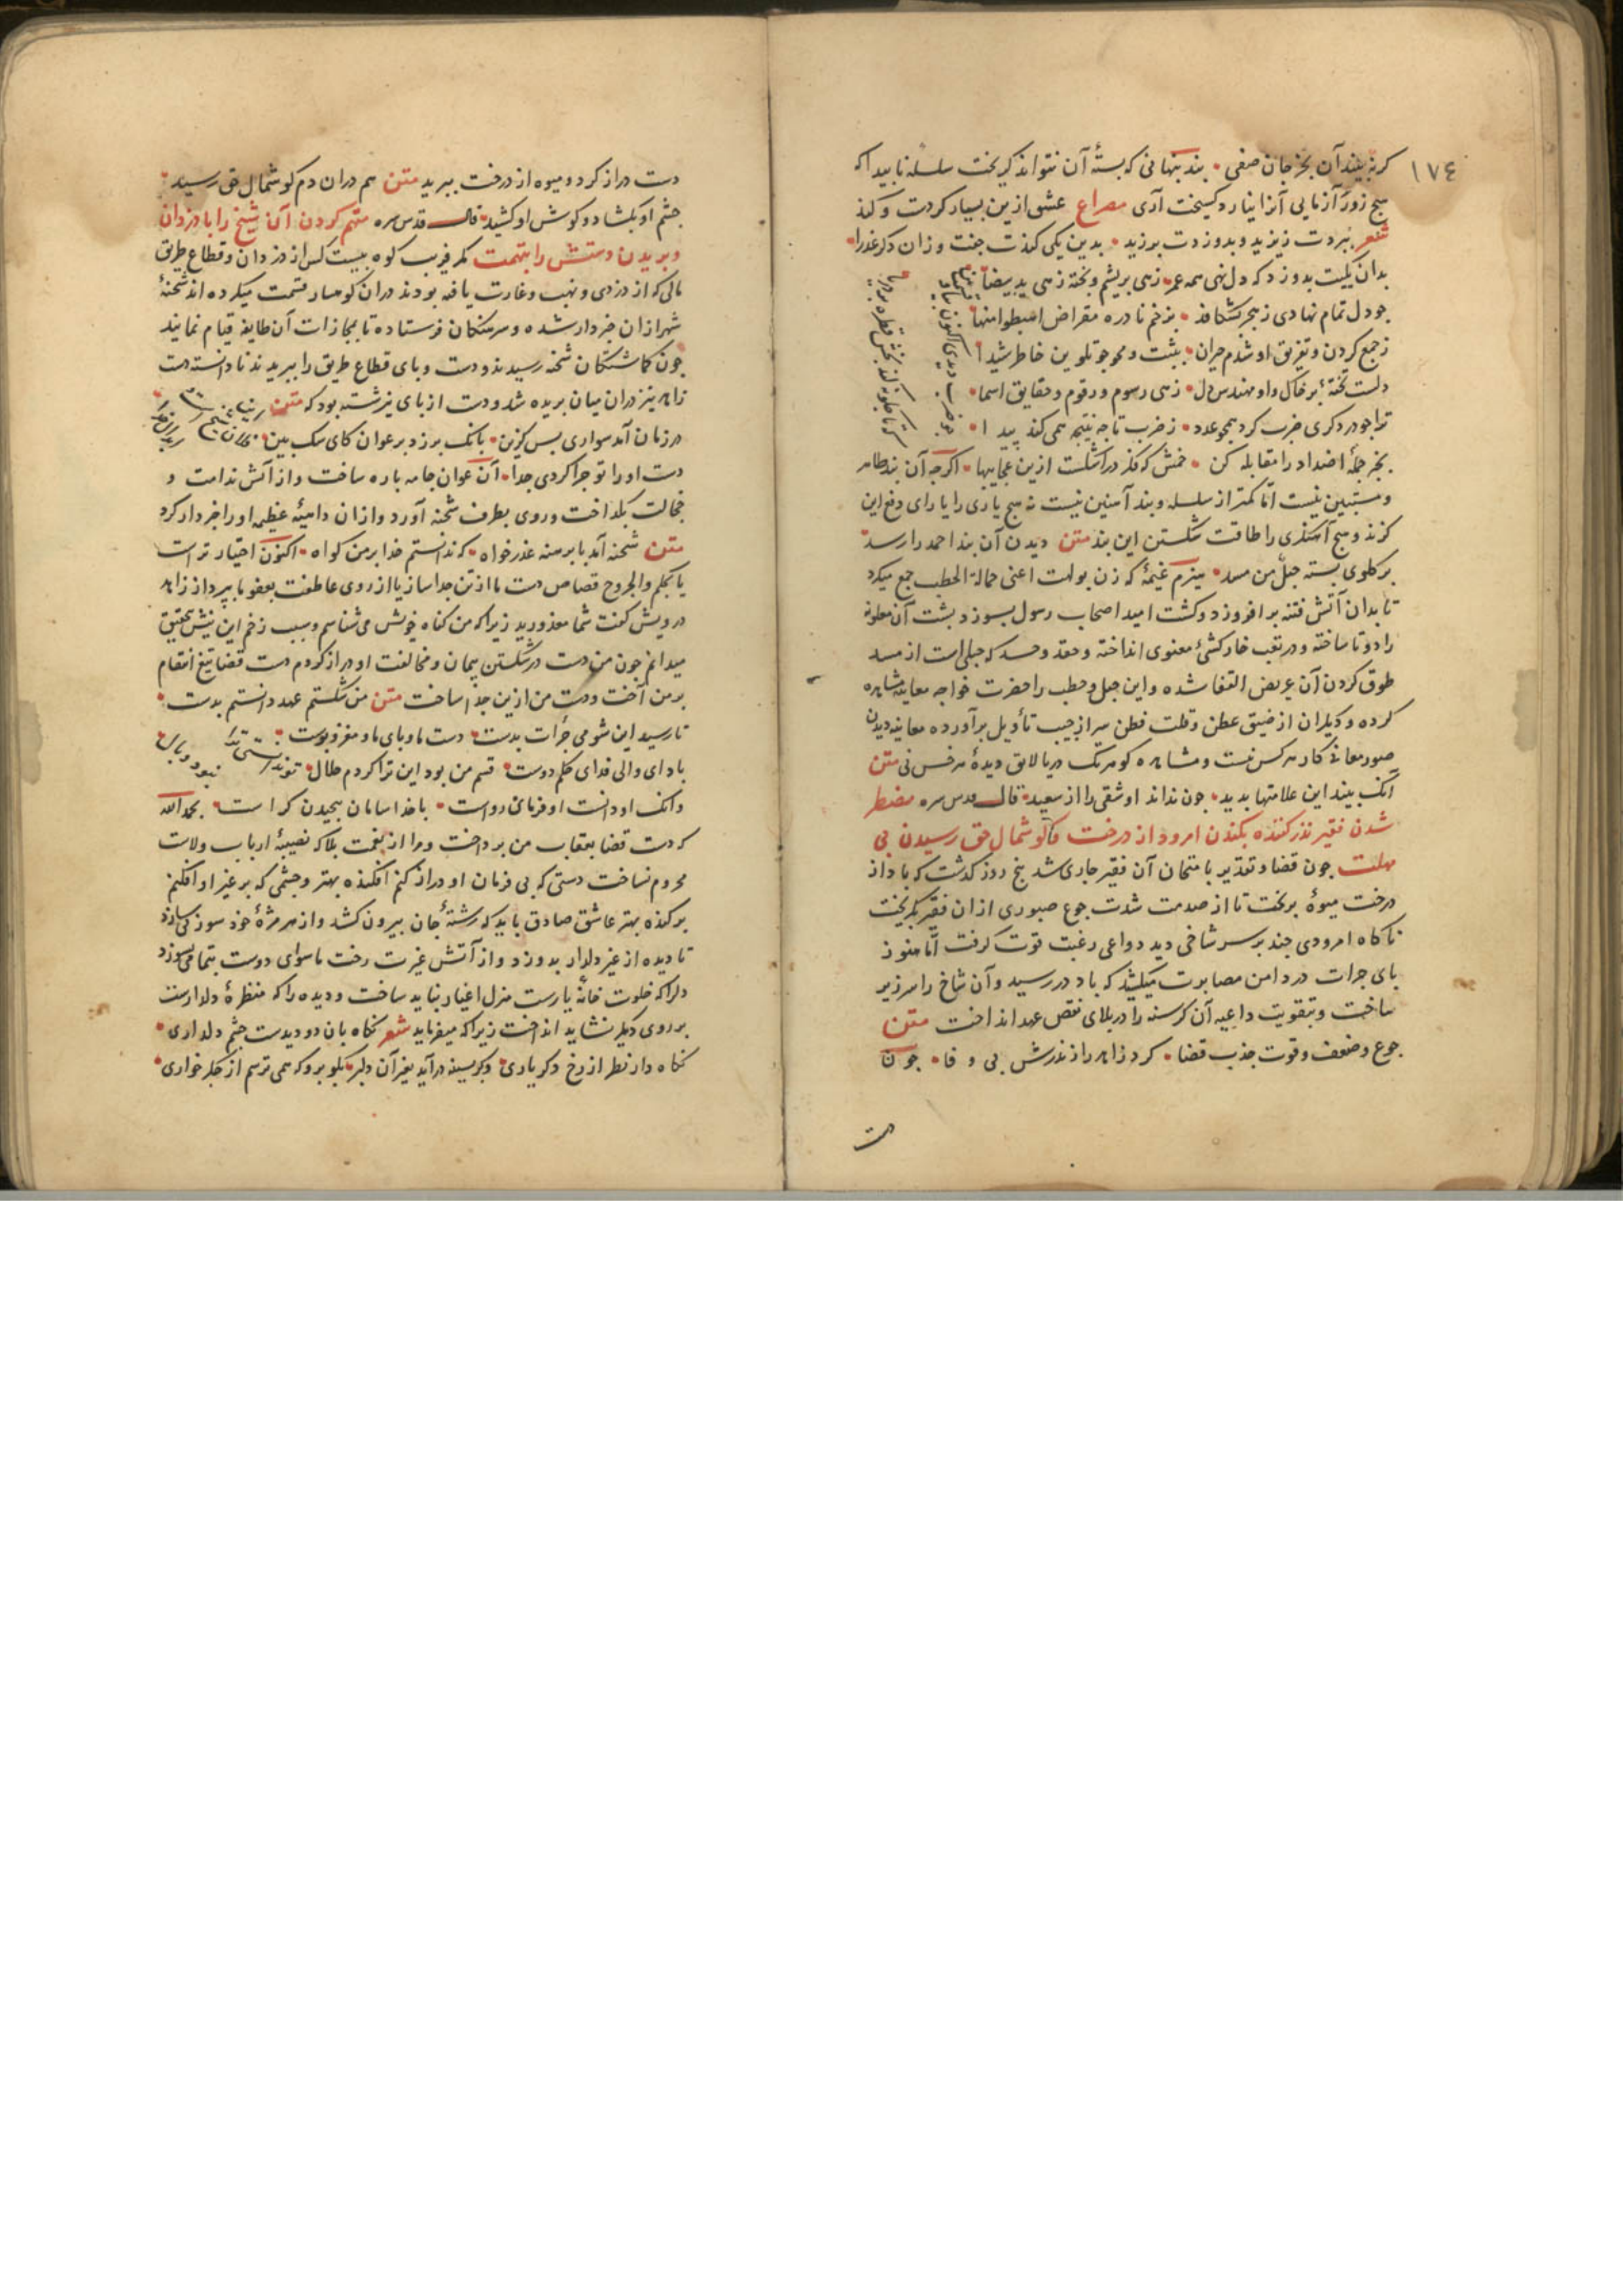 ١٧٤
که نه بیند آن بجز جان صفی بند پنهانی که بستهٔ آن نتواند کریخت سلسله ناپیدا که
هیچ زورآزمایی آنرا نیارد کسیخت آری مصراع عشق ازین بسیار کردست و کند
شعر ببردت زیزید و بدوزدت برزید بدین یکی کندت جفت وزان دکر عذرا
بدان یکیت بدوزد که دل نهی همه عمر زهی بریشم و بخیه زهی ید بیضا
جو دل تمام نهادی ز هجر بشکافد بزخم نادره مقراض اهبطوا منها
ز جمع کردن و تفریق او شدم حیران بثبت و محو جو تلوین خاطر شیدا
دلست تختهٔ بر خاک و او مهندس دل زهی رسوم و رقوم و حقایق اسما
ترا جو در دکری ضرب کرد همجو عدد ز ضرب تا جه نتیجه همی کند پیدا
بخر جمله اضداد را مقابله کن خمش که فکر دراشکست ازین عجایبها اکرجه آن بند ظاهر
و مستبین نیست اما کمتر از سلسله و بند آهنین نیست نه هیچ یاری را یارای دفع این
کزند و هیچ آهنکری را طاقت شکستن این بند متن دیدن آن بند احمد را رسد
بر کلوی بسته حبل من مسد هیزم که زن بولهب اعنی حمالة الحطب جمع میکرد
تا بدان آتش فتنه بر افروزد و کشت امید اصحاب رسول بسوزد بشت آن ملعونه
را دوتا ساخته و در تعب خارکشئ معنوی انداخته و حقد و حسد که حبلی است از مسد
طوق کردن آن عریض القفا شده و این حبل و حطب را حضرت خواجه معاینه مشاهده
کرده و دیکران از ضیق عطن و قلت فطن سر از جیب تأویل برآورده معاینه دیدن
صور معانی کار هر کس نیست و مشاهده کوهر تک دریا لایق دیدهٔ هر خس نی متن
آنک بیند این علامتها بدید جون نداند او شقی را از سعید قال قدس سره مضطر
شدن فقیر نذر کننده بکندن امرود از درخت و کوشمال حق رسیدن بی
مهلت جون قضا و تقدیر بامتحان آن فقیر جاری شد بنج روز کذشت که باد از
درخت میوهٔ بریخت تا از صدمت شدت جوع صبوری از ان فقیر بکریخت
ناکاه امرودی جند بر سر شاخی دید دواعی رغبت قوت کرفت اما هنوز
بای جرات در دامن مصابرت میکشید که باد در رسید و آن شاخ را سر زیر
ساخت و بتقویت داعیه آن کرسنه را در بلای نقض عهد انداخت متن
جوع و ضعف و قوت جذب قضا کرد زاهد را ز نذرش بی وفا جون
دست
دست دراز کرد و میوه از درخت ببرید متن هم دران دم کوشمال حق رسید
جشم او بکشاد و کوش او کشید قال قدس سره متهم کردن آن شیخ را با دزدان
و بریدن دستش را بتهمت مکر قریب کوه بیست کس از دزدان و قطاع طریق
مالی که از دزدی و نهب و غارت یافته بودند دران کوهسار قسمت میکرده اند شحنهٔ
شهر ازان خبردار شده و سرهنکان فرستاده تا بمجازات آن طایفه قیام نمایند
جون کماشتکان شحنه رسیدند و دست و بای قطاع طریق را ببریدند نادانسته دست
زاهد نیز دران میان بریده شد و دست از بای نیز شسته بود که متن
در زمان آمد سواری بس کزین بانک برزد بر عوان کای سک ببین
دست او را تو جرا کردی جدا آن عوان جامه باره ساخت و از آتش ندامت و
خجالت بکداخت و روی بطرف شحنه آورد و ازان داهیهٔ عظیمه او را خبردار کرد
متن شحنه آمد با برهنه عذرخواه که ندانستم خدا بر من کواه اکنون اختیار تراست
یا بحکم والجروح قصاص دست ما از تن جدا ساز یا از روی عاطفت بعفو ما بپرداز زاهد
درویش کفت شما معذورید زیرا که من کناه خویش می شناسم و سبب زخم این نیش بتحقیق
میدانم جون من دست در شکستن پیمان و مخالفت او دراز کردم دست قضا تیغ انتقام
بر من آخت و دست من ازین جدا ساخت متن من شکستم عهد و دانستم بدست
تا رسید این شومی جرأت بدست دست ما و بای ما و مغز و بوست
باد ای والی فدای حکم دوست قسم من بود این ترا کردم حلال
وانک او دانست او فرمان رواست با خدا سامان بیجیدن کراست بحمد الله
که دست قضا بعقاب من برداخت و مرا از نعمت بلا که نصیبهٔ ارباب ولاست
محروم نساخت دستی که بی فرمان او دراز کنم افکنده بهتر و جشمی که بر غیر او افکنم
برکنده بهتر عاشق صادق باید که رشتهٔ جان بیرون کشد و از هر مژهٔ خود سوزنی سازد
تا دیده از غیر دلدار بدوزد و از آتش غیرت رخت ماسوای دوست بتمامی بسوزد
دل را که خلوت خانهٔ یارست منزل اغیار نباید ساخت و دیده را که منظرهٔ دلدارست
بر روی دیکر نشاید انداخت زیرا که میفرماید شعر نکاه بان دو دیدست جشم دلداری
نکاه دار نظر از رخ دکر یاری وکر بسینه درآید بغیر آن دلبر بکو برو که همی ترسم از جکرخواری